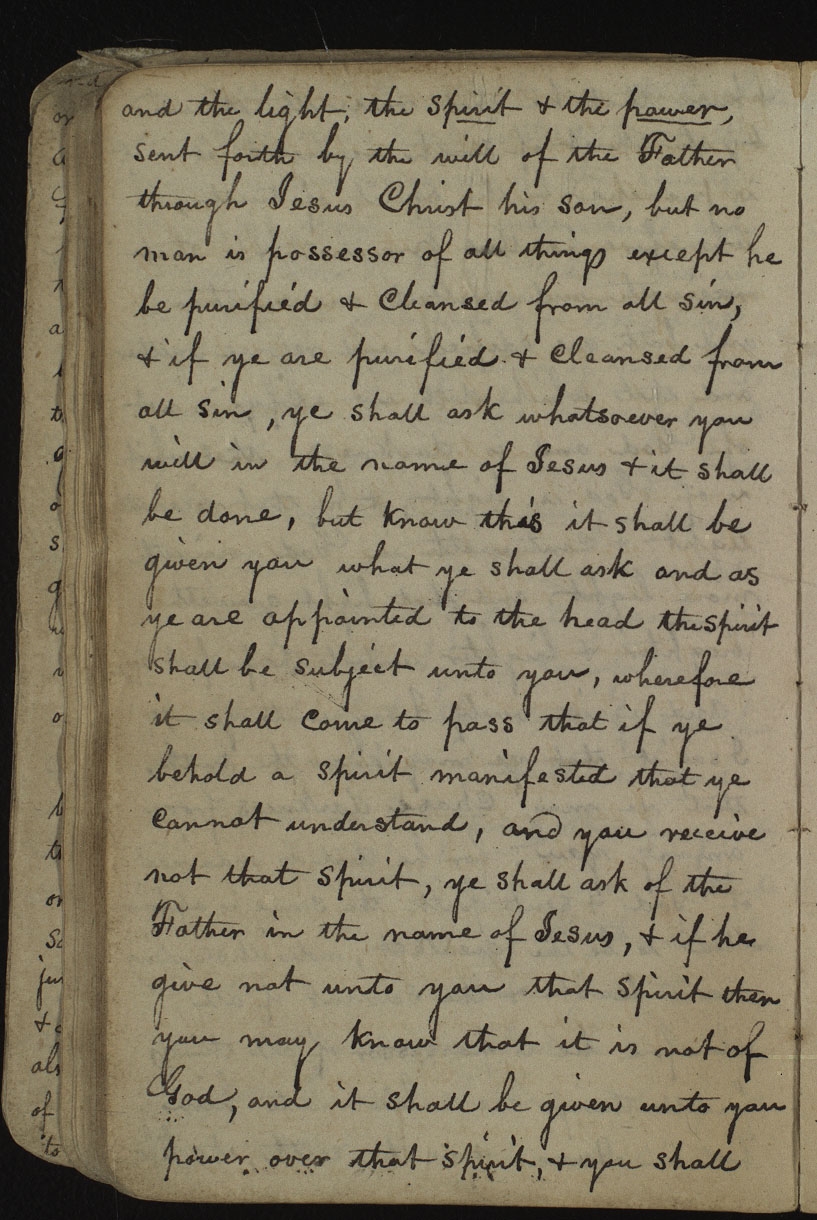 and the light, the spirit & the power,
sent forth by the will of the Father
through Jesus Christ his son, but no
man is possessor of all things except he
be purified & Cleansed from all sin,
& if ye are purified & Cleansed from
all sin, ye shall ask whatsoever you
will in the name of Jesus & it shall
be done, but know this it shall be
given you what ye shall ask and as
ye are appointed to the head the spirit
shall be subject unto you, wherefore
it shall come to pass that if ye
behold a spirit manifested that ye
cannot understand, and you receive
not that spirit, ye shall ask of the
Father in the name of Jesus, & if he
give not unto you that spirit then
you may know that it is not of
God, and it shall be given unto you
power over that spirit, & you shall